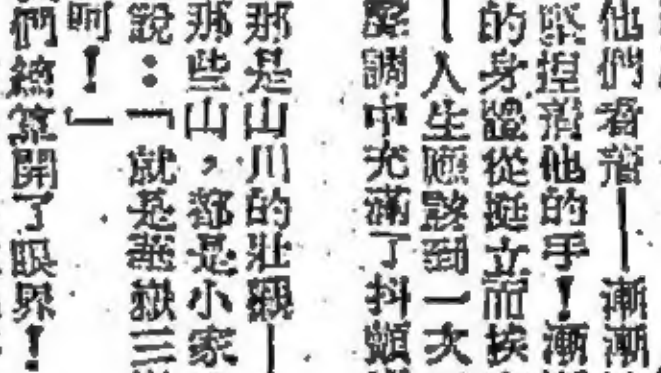 他們看着——漸漸
緊捏着他的手！漸
的身體從挺立而挨
—人生應該到一次
聲調中充滿了抖顫
那是山川的壯觀—
那些山，都是小家
說：「就是五嶽三
呵！」
們總算開了眼界！